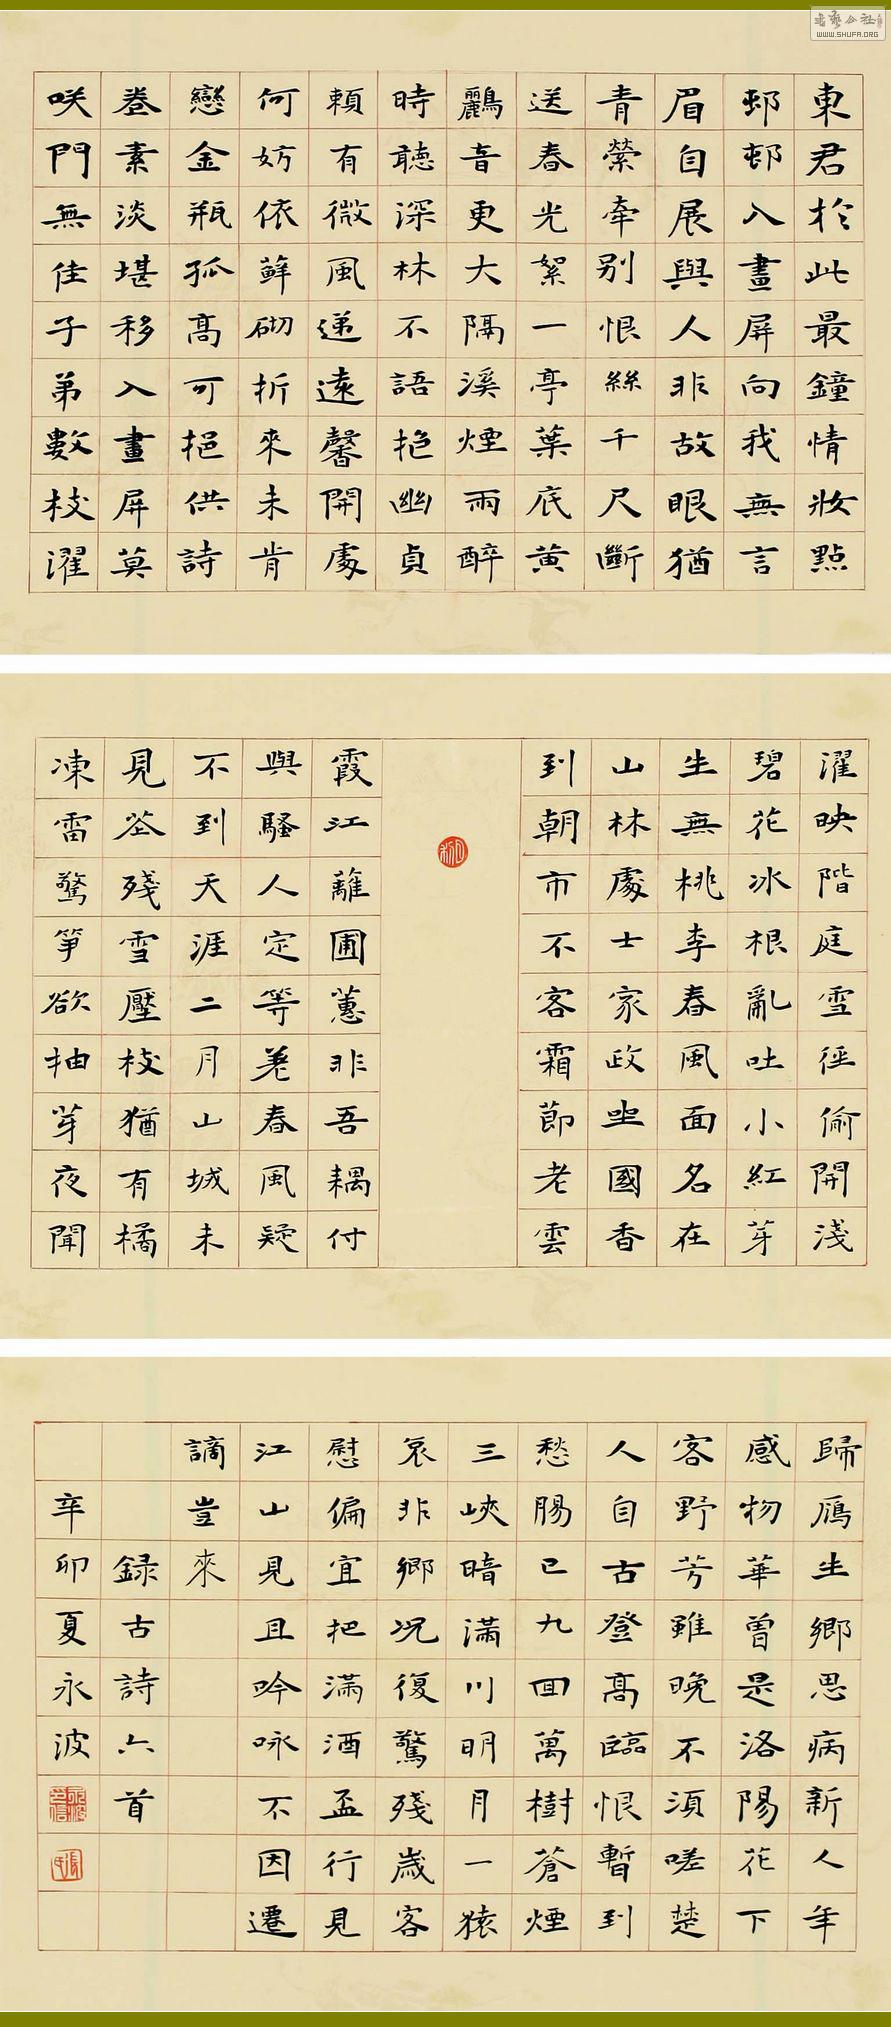 東君於此最鐘情妝點
邨邨入畫屏向我無言
眉自展與人非故眼猶
青縈牽别恨絲千尺斷
送春光絮一亭葉底黄
鸝音更大隔溪煙雨醉
時聽深林不語抱幽貞
賴有微風遞遠馨開處
何妨依蘚砌折來未肯
戀金瓶孤高可挹供詩
卷素淡堪移入畫屏莫
咲門無佳子弟數枝濯
濯映階庭雪徑偷開淺
碧花冰根亂吐小紅芽
生無桃李春風面名在
山林處士家政坐國香
到朝市不容霜節老雲
霞江蘺圃蕙非吾耦付
與騷人定等差春風疑
不到天涯二月山城未
見花殘雪壓枝猶有橘
凍雷驚筍欲抽芽夜聞
歸雁生鄉思病新人年
感物華曾是洛陽花下
客野芳雖晚不須嗟楚
人自古登高臨恨暫到
愁腸已九回萬樹蒼煙
三峽暗滿川明月一猿
哀非鄉況復驚殘歲客
慰偏宜把滿酒盃行見
江山見且吟咏不因遷
謫豈來
録古詩六首
辛卯夏永波
張氏
書藝公社
WWW.SHUFA.ORG